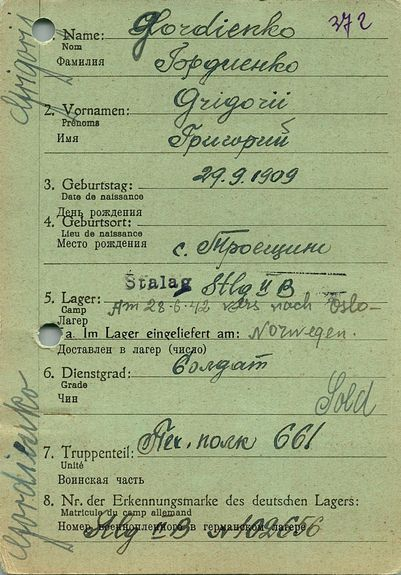 Name: Gordienko 372
Nom
Фамилия Гордиенко
2. Vornamen: Grigorii
Prénoms
Имя Григорий
3. Geburtstag: 29.9.1909
Date de naissance
День рождения
4. Geburtsort:
Lieu de naissance
Место рождения с. Троещин
Stalag Stlg II B
5. Lager: Am 28.6.42 vers nach Oslo-
Camp
Лагер
a. Im Lager eingeliefert am: Norwegen.
Доставлен в лагер (число)
6. Dienstgrad: Солдат
Grade
Чин Sold
7. Truppenteil: Пех. полк 661
Unité
Воинская часть
8. Nr. der Erkennungsmarke des deutschen Lagers:
Matricule du camp allemand
Номер военнопленного в германском лагере
Stlg II B N 102656
Grigorij
Gordienko